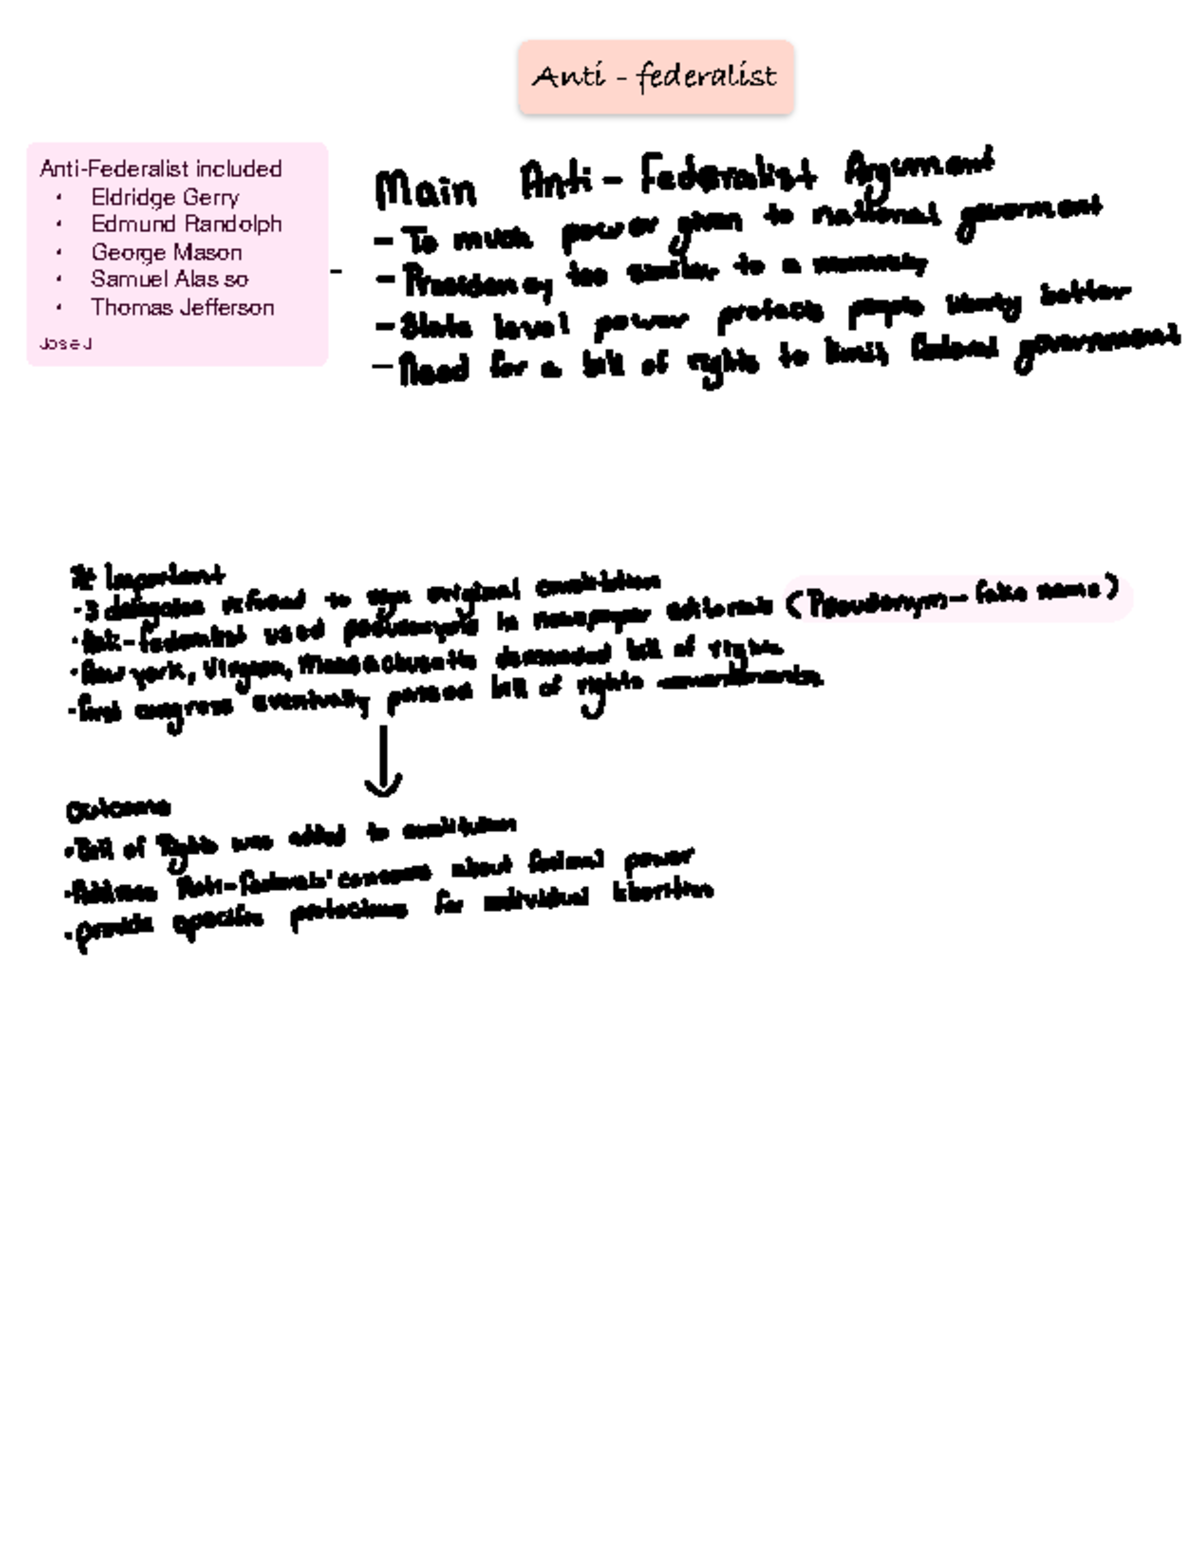 Anti - federalist
Anti-Federalist included
• Eldridge Gerry
• Edmund Randolph
• George Mason
• Samuel Alas so
• Thomas Jefferson
Jose J
-
Main Anti - Federalist Argument
- To much power given to national government
- Presidency too similar to a
- State level power protects people liberty better
- Need for a bill of rights to limit federal government
* Important
• 3 delegates refused to sign original constitution
• used in newspaper editorials (Pseudonym - fake name)
• New york, Virginia, demanded bill of rights
• first congress eventually passed bill of rights amendments
↓
Outcome
• Bill of Rights was added to constitution
• Address concerns about federal power
• provide specific protections for individual liberties